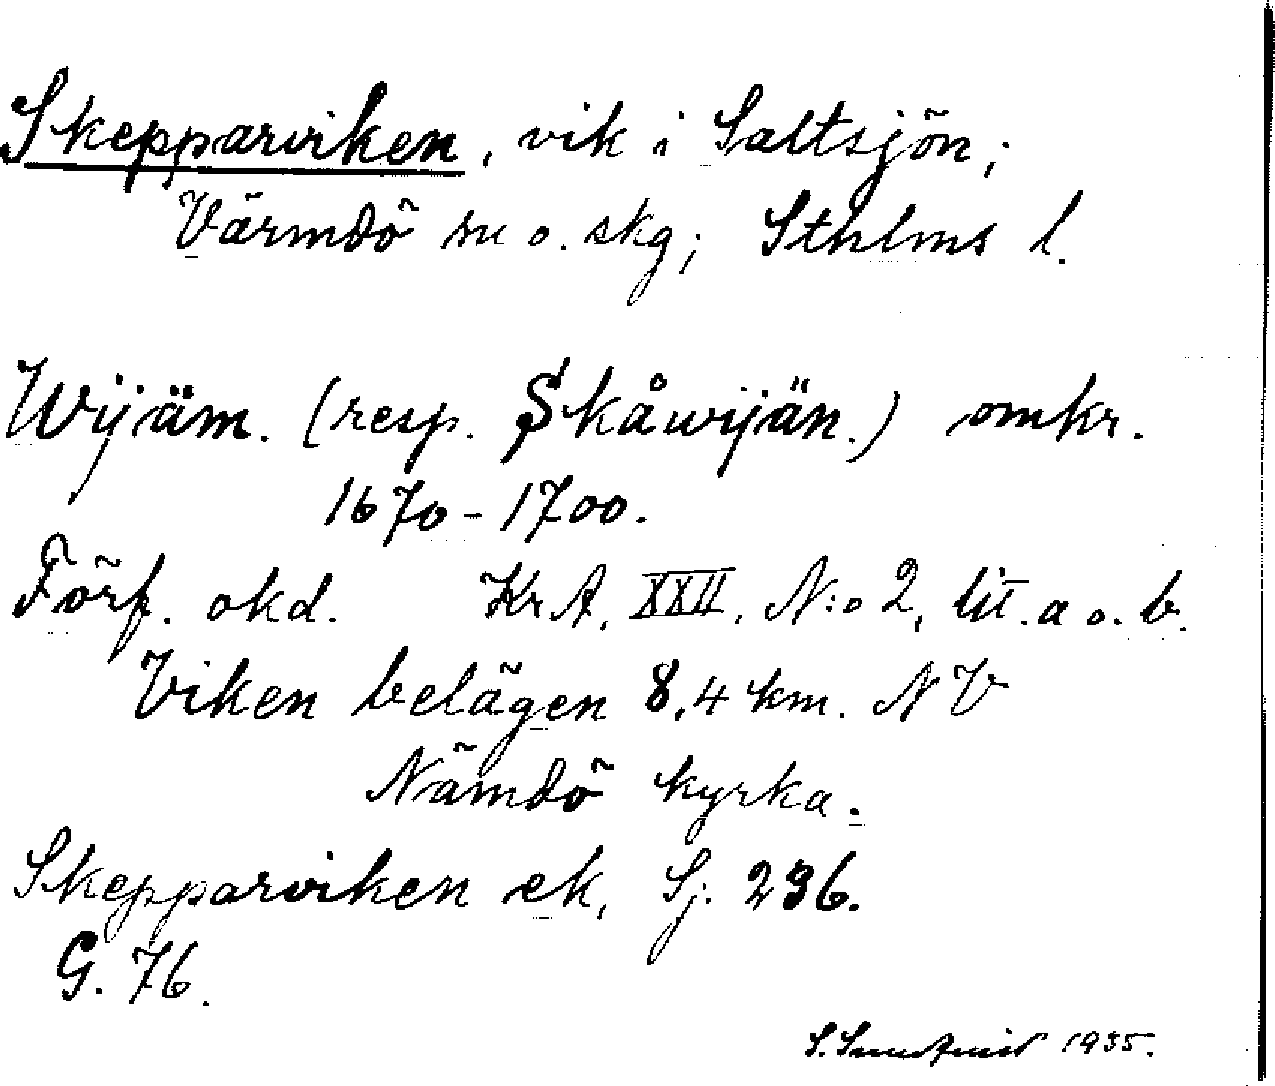 Skepparviken, vik i Saltsjön;
Värmdö sn o. skg; Sthlms l.
Wijäm. (resp. Skåwijän.) omkr.
1670-1700.
Förf. okd. KrA. XXII. N:o 2, lit. a o. b.
Viken belägen 8,4 km. NV
Nämdö kyrka.
Skepparviken ek, Sj. 236.
G. 76.
S. 1935.